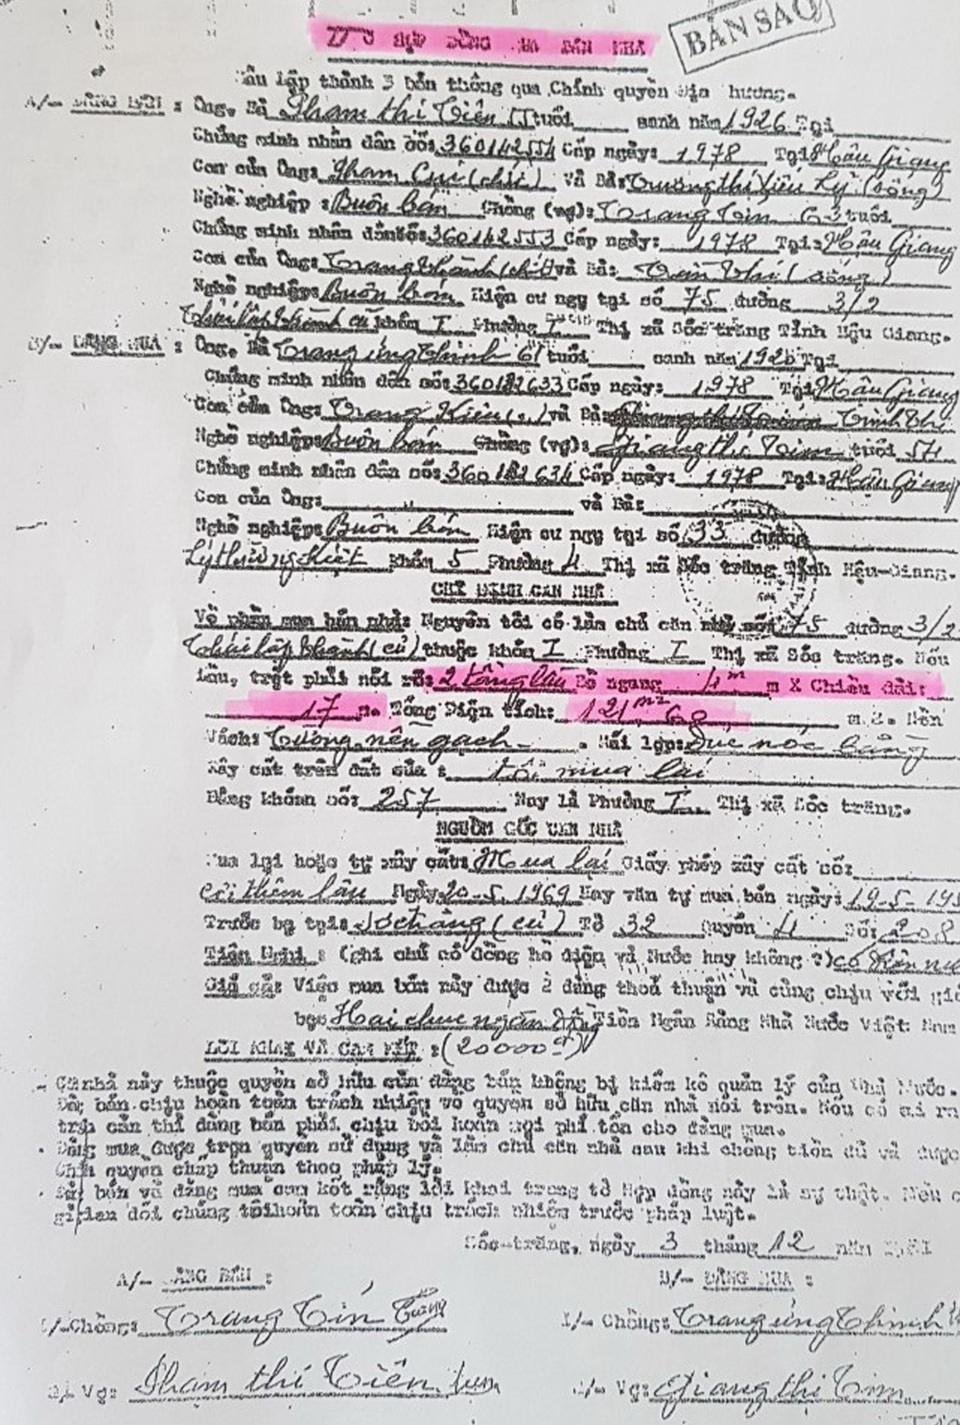 TỜ HỢP ĐỒNG MUA BÁN NHÀ
BẢN SAO
Mẫu lập thành 3 bản thông qua Chính quyền Địa phương.
A/- ĐẰNG BÁN : Ông, Bà Phạm thị Tiên 55 tuổi sanh năm 1926 Tại
Chứng minh nhân dân số: 360142554 Cấp ngày: 1978 Tại: Hậu Giang
Con của Ông: Phạm Cúi (chết) Và Bà: Trương thị Liễu Lý (sống)
Nghề nghiệp : Buôn bán Chồng (vợ): Trang Tín 63 tuổi
Chứng minh nhân dân số: 360142553 Cấp ngày: 1978 Tại: Hậu Giang
Con của Ông: Trang Thành (chết) và Bà: Trần Thị (sống)
Nghề nghiệp: Buôn bán Hiện cư ngụ tại số 75 đường 3/2
Thái lập thành cũ khóm I Phường I Thị xã Sóc trăng Tỉnh Hậu Giang.
B/- ĐẰNG MUA : Ông, Bà Trang ứng Thinh 61 tuổi sanh năm 1920 Tại
Chứng minh nhân dân số: 360182633 Cấp ngày: 1978 Tại Hậu Giang
Con của Ông: Trang Kiên và Bà: Trịnh Thị
Nghề nghiệp: Buôn bán Chồng (vợ): Giang thị Tim tuổi 57
Chứng minh nhân dân số: 360182634 Cấp ngày: 1978 Tại: Hậu Giang
Con của Ông: và Bà:
Nghề nghiệp: Buôn bán Hiện cư ngụ tại số 33 đường
Lý thường Kiệt Khóm 5 Phường 4 Thị xã Sóc trăng Tỉnh Hậu-Giang.
CHỈ ĐỊNH CĂN NHÀ
Về phần mua bán nhà: Nguyên tôi có làm chủ căn nhà số 75 đường 3/2
Thái lập thành (cũ) thuộc khóm I Phường I Thị xã Sóc trăng. Nếu
Lầu, trệt phải nói rõ: 2 tầng lầu Bề ngang 4m m X Chiều dài:
17 m. Tổng Diện tích: 121m2 68 m.2. Nền
Vách: Tường, nền gạch. Mái lợp: Đúc nóc bằng
Xây cất trên đất của : tôi mua lại
Bằng khoán số: 257 Nay là Phường I Thị xã Sóc trăng.
NGUỒN GỐC CĂN NHÀ
Mua lại hoặc tự xây cất: Mua lại Giấy phép xây cất số:
cơi thêm lầu Ngày 20-5.1969 Hay văn tự mua bán ngày: 19-5-195
Trước bạ tại: Sóc trăng (cũ) Tờ 32 Quyển 4 Số: 208
Tiện Nghi : (ghi chú có đồng hồ điện và Nước hay không ?) có
Giá cả: Việc mua bán này được 2 đằng thoả thuận và cùng chịu với giá
bạc Hai chục ngàn đồng Tiền Ngân Hàng Nhà Nước Việt Nam
LỜI KHAI VÀ CAM KẾT : (20000đ)
- Căn nhà này thuộc quyền sở hữu của đằng bán không bị kiểm kê quản lý của Nhà Nước.
Đằng bán chịu hoàn toàn trách nhiệm về quyền sở hữu căn nhà nói trên. Nếu có ai ra
tranh cản thì đằng bán phải chịu bồi hoàn mọi phí tổn cho đằng mua.
- Đằng mua được trọn quyền sử dụng và làm chủ căn nhà sau khi chồng tiền đủ và được
Chính quyền chấp thuận theo pháp lý.
- Đằng bán và đằng mua cam kết rằng lời khai trong tờ Hợp đồng này là sự thật. Nếu có
gian dối chúng tôi hoàn toàn chịu trách nhiệm trước pháp luật.
Sóc-trăng, ngày 3 tháng 12 năm 1981
A/- ĐẰNG BÁN : B/- ĐẰNG MUA :
1/-Chồng: Trang Tín 1/- Chồng: Trang ứng Thinh
2/- Vợ: Phạm thị Tiên 2/- Vợ: Giang thị Tim